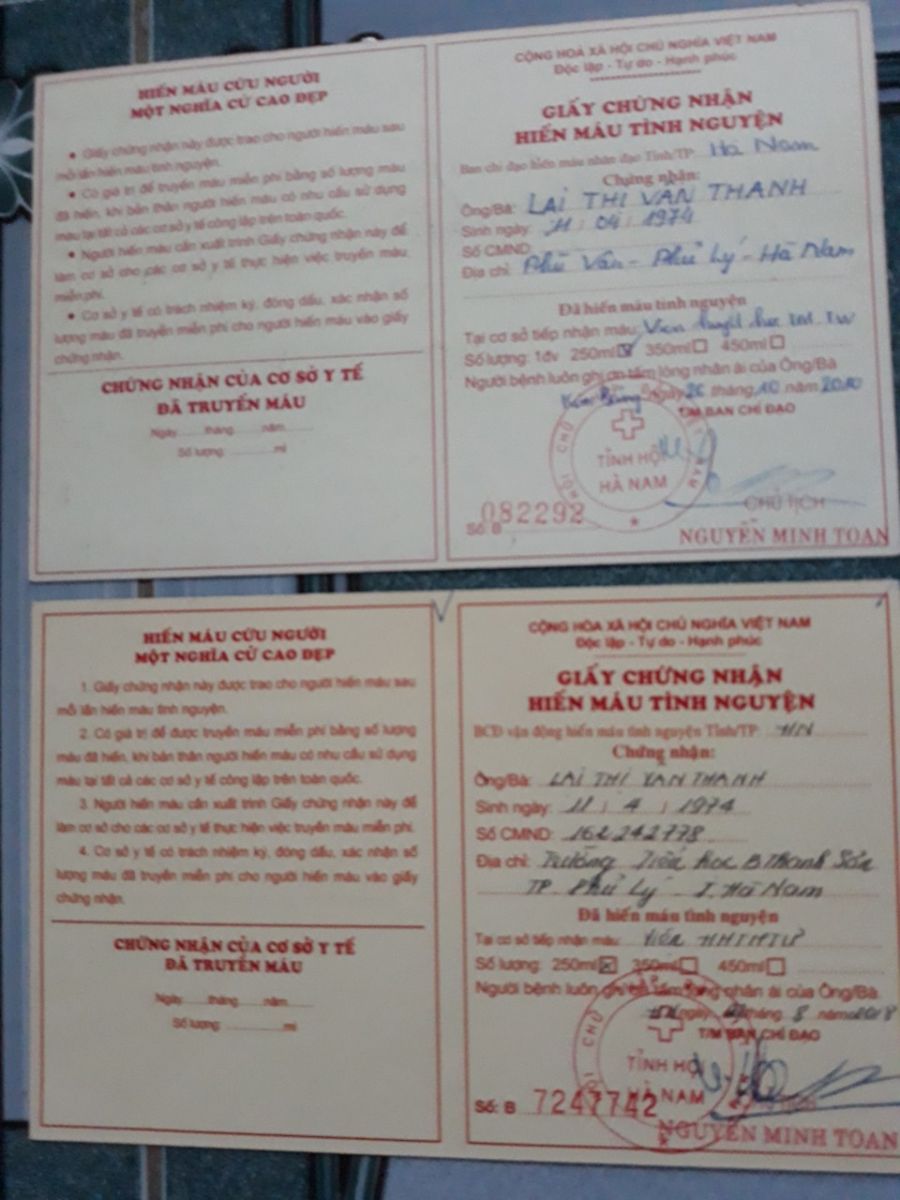 HIẾN MÁU CỨU NGƯỜI
MỘT NGHĨA CỬ CAO ĐẸP
• Giấy chứng nhận này được trao cho người hiến máu sau
mỗi lần hiến máu tình nguyện.
• Có giá trị để truyền máu miễn phí bằng số lượng máu
đã hiến, khi bản thân người hiến máu có nhu cầu sử dụng
máu tại tất cả các cơ sở y tế công lập trên toàn quốc.
• Người hiến máu cần xuất trình Giấy chứng nhận này để
làm cơ sở cho các cơ sở y tế thực hiện việc truyền máu
miễn phí.
• Cơ sở y tế có trách nhiệm ký, đóng dấu, xác nhận số
lượng máu đã truyền miễn phí cho người hiến máu vào giấy
chứng nhận.
CHỨNG NHẬN CỦA CƠ SỞ Y TẾ
ĐÃ TRUYỀN MÁU
Ngày......tháng......năm......
Số lượng: ............ml
CỘNG HOÀ XÃ HỘI CHỦ NGHĨA VIỆT NAM
Độc lập - Tự do - Hạnh phúc
GIẤY CHỨNG NHẬN
HIẾN MÁU TÌNH NGUYỆN
Ban chỉ đạo hiến máu nhân đạo Tỉnh/TP: Hà Nam
Chứng nhận:
Ông/Bà: LẠI THỊ VÂN THANH
Sinh ngày: 11 / 04 / 1974
Số CMND:
Địa chỉ: Phù Vân - Phủ Lý - Hà Nam
Đã hiến máu tình nguyện
Tại cơ sở tiếp nhận máu: Viện huyết học TW
Số lượng: 1đv 250ml☑ 350ml☐ 450ml☐
Người bệnh luôn ghi ơn tấm lòng nhân ái của Ông/Bà
Ngày 26 tháng 10 năm 2010
T/M BAN CHỈ ĐẠO
TỈNH HỘI
HÀ NAM
CHỦ TỊCH
Số: B 082292
NGUYỄN MINH TOAN
HIẾN MÁU CỨU NGƯỜI
MỘT NGHĨA CỬ CAO ĐẸP
1. Giấy chứng nhận này được trao cho người hiến máu sau
mỗi lần hiến máu tình nguyện.
2. Có giá trị để được truyền máu miễn phí bằng số lượng
máu đã hiến, khi bản thân người hiến máu có nhu cầu sử dụng
máu tại tất cả các cơ sở y tế công lập trên toàn quốc.
3. Người hiến máu cần xuất trình Giấy chứng nhận này để
làm cơ sở cho các cơ sở y tế thực hiện việc truyền máu miễn phí.
4. Cơ sở y tế có trách nhiệm ký, đóng dấu, xác nhận số
lượng máu đã truyền miễn phí cho người hiến máu vào giấy
chứng nhận.
CHỨNG NHẬN CỦA CƠ SỞ Y TẾ
ĐÃ TRUYỀN MÁU
Ngày......tháng......năm......
Số lượng: ............ml
CỘNG HÒA XÃ HỘI CHỦ NGHĨA VIỆT NAM
Độc lập - Tự do - Hạnh phúc
GIẤY CHỨNG NHẬN
HIẾN MÁU TÌNH NGUYỆN
BCĐ vận động hiến máu tình nguyện Tỉnh/TP: HN
Chứng nhận:
Ông/Bà: LẠI THỊ VÂN THANH
Sinh ngày: 11 / 4 / 1974
Số CMND: 162242778
Địa chỉ: Trường Tiểu học B Thanh Sơn
TP Phủ Lý T. Hà Nam
Đã hiến máu tình nguyện
Tại cơ sở tiếp nhận máu: Viện HHTMTƯ
Số lượng: 250ml☒ 350ml☐ 450ml☐
Người bệnh luôn ghi ơn tấm lòng nhân ái của Ông/Bà
ngày tháng 8 năm 2018
T/M BAN CHỈ ĐẠO
TỈNH HỘI
HÀ NAM
Số: B 7247742
NGUYỄN MINH TOAN